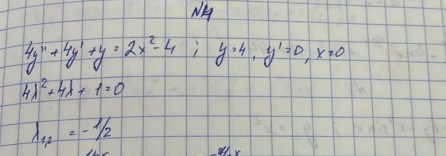 №4
4y'' + 4y' + y = 2x² - 4 ; y = 4, y' = 0, x = 0
4λ² + 4λ + 1 = 0
λ₁,₂ = -1/2